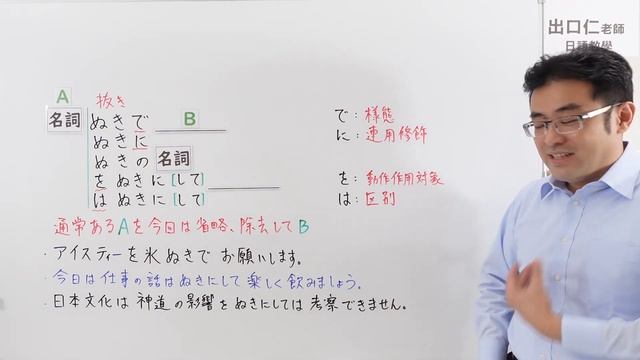 出口仁老師
日語教學
A
抜き
名詞 ぬきで B
ぬきに
ぬきの 名詞
を ぬきに [して]
は ぬきに [して]
で：様態
に：連用修飾
を：動作作用対象
は：区別
通常あるAを今回は省略、除去してB
・アイスティーを氷ぬきでお願いします。
・今日は仕事の話はぬきにして楽しく飲みましょう。
・日本文化は神道の影響をぬきにしては考察できません。